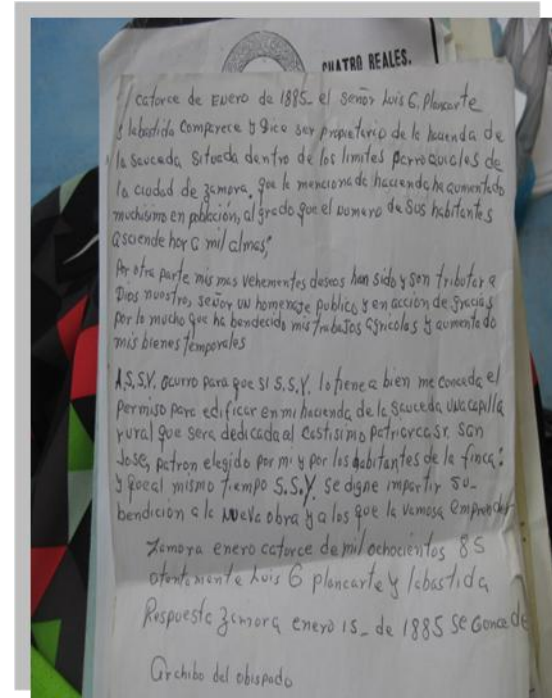 CUATRO REALES.
catorce de Enero de 1885_ el señor Luis G. Plancarte
y labastida comparece y dice ser propietario de la hacienda de
la sauceda situada dentro de los limites parroquiales de
la ciudad de zamora, que la mencionada hacienda ha aumentado
muchisimo en poblacion, al grado que el numero de sus habitantes
asciende hoy a mil almas;
Por otra parte mis mas vehementes deseos han sido y son tributar a
Dios nuestro, señor un homenaje publico y en acción de gracias
por lo mucho que ha bendecido mis trabajos agricolas y aumentado
mis bienes temporales
A.S.S.Y. ocurro para que si S.S.Y. lo tiene a bien me conceda el
permiso para edificar en mi hacienda de la sauceda una capilla
rural que sera dedicada al castisimo patriarca sr. san
Jose, patron elegido por mi y por los habitantes de la finca:
y que al mismo tiempo S.S.Y. se digne impartir su_
bendicion a la nueva obra y a los que la vamos a emprender
Zamora enero catorce de mil ochocientos 85
atentamente Luis G plancarte y labastida
Respuesta Zamora enero 15_ de 1885 se concede
Archibo del obispado